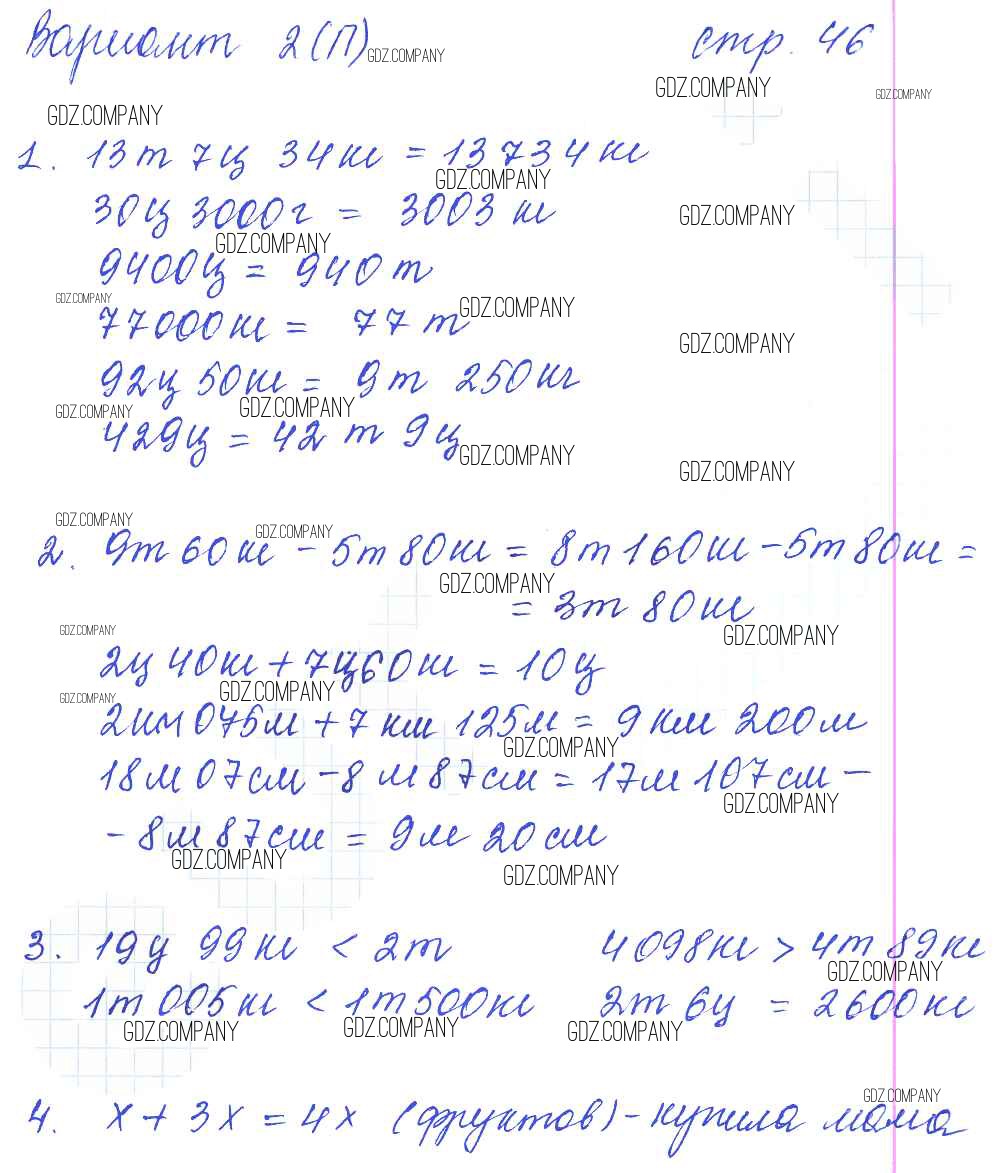 Вариант 2(П) GDZ.COMPANY стр. 46
GDZ.COMPANY GDZ.COMPANY
GDZ.COMPANY
1. 13т 7ц 34кг = 13734кг
GDZ.COMPANY
30ц 3000г = 3003 кг GDZ.COMPANY
GDZ.COMPANY
9400ц = 940 т
GDZ.COMPANY GDZ.COMPANY
77000кг = 77 т
GDZ.COMPANY
92ц 50кг = 9т 250кг
GDZ.COMPANY GDZ.COMPANY
429ц = 42 т 9ц
GDZ.COMPANY GDZ.COMPANY
GDZ.COMPANY GDZ.COMPANY
2. 9т 60кг - 5т 80кг = 8т 160кг - 5т 80кг =
GDZ.COMPANY
= 3т 80кг
GDZ.COMPANY GDZ.COMPANY
2ц 40кг + 7ц 60кг = 10ц
GDZ.COMPANY GDZ.COMPANY
2км 075м + 7 км 125м = 9 км 200м
GDZ.COMPANY
18м 07см - 8 м 87см = 17м 107см -
GDZ.COMPANY
- 8м 87см = 9м 20см
GDZ.COMPANY GDZ.COMPANY
3. 19ц 99кг < 2т 4098кг > 4т 89кг
GDZ.COMPANY
1т 005кг < 1т 500кг 2т 6ц = 2600кг
GDZ.COMPANY GDZ.COMPANY GDZ.COMPANY
GDZ.COMPANY
4. х + 3х = 4х (фруктов) - купила мама